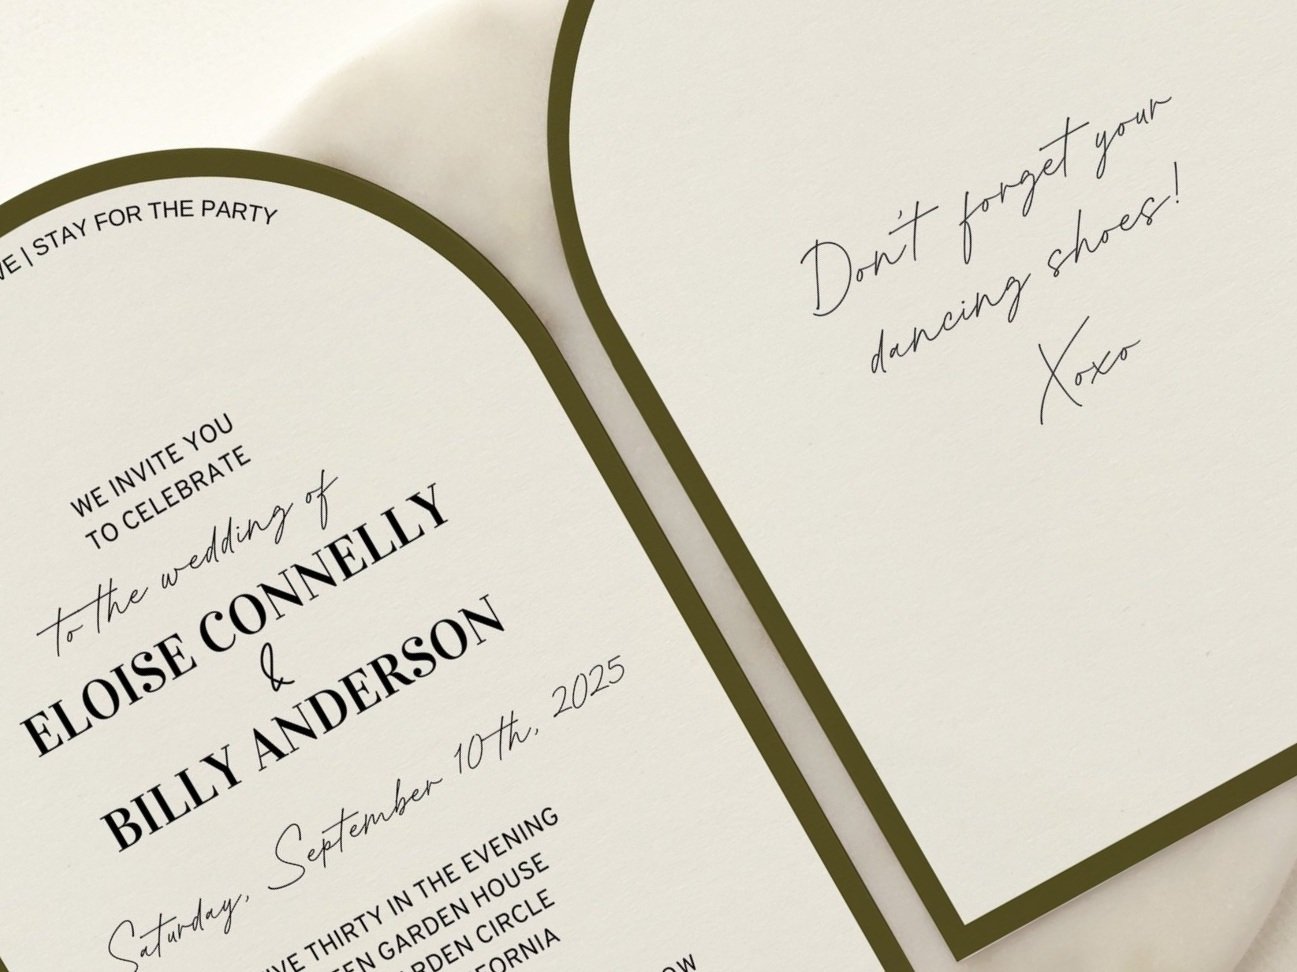 STAY FOR THE PARTY
WE INVITE YOU
TO CELEBRATE
to the wedding of
ELOISE CONNELLY
&
BILLY ANDERSON
Saturday, September 10th, 2025
THIRTY IN THE EVENING
GARDEN HOUSE
CIRCLE
Don't forget your
dancing shoes!
Xoxo